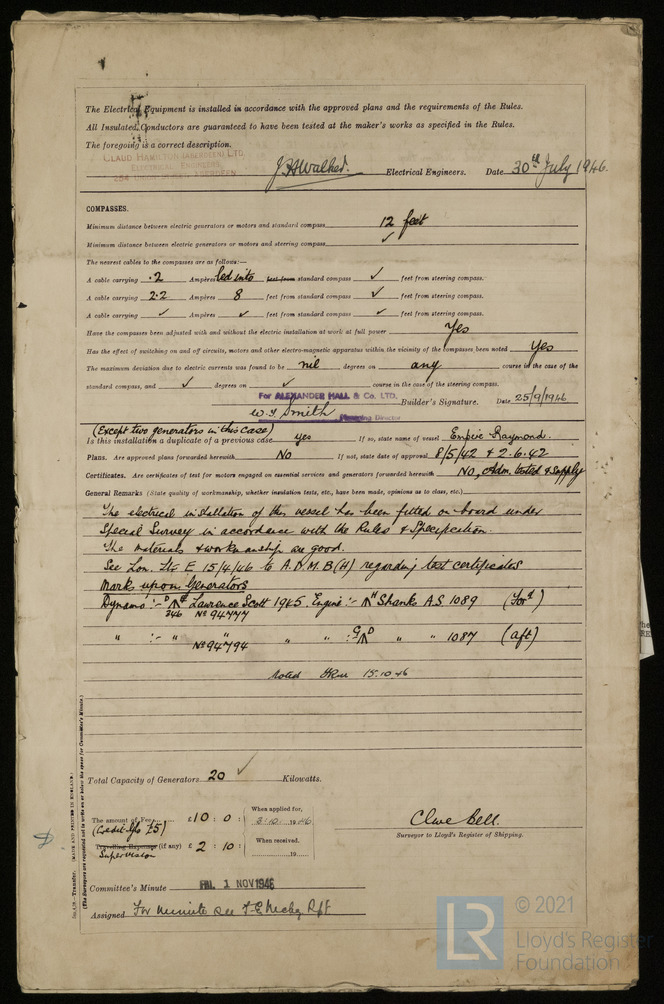 The Electrical Equipment is installed in accordance with the approved plans and the requirements of the Rules.
All Insulated Conductors are guaranteed to have been tested at the maker's works as specified in the Rules.
The foregoing is a correct description.
CLAUD HAMILTON (ABERDEEN) LTD.
ELECTRICAL ENGINEERS,
254 ABERDEEN
J.H.Walker. Electrical Engineers. Date 30th July 1946.
COMPASSES.
Minimum distance between electric generators or motors and standard compass 12 feet
Minimum distance between electric generators or motors and steering compass ✓
The nearest cables to the compasses are as follows:—
A cable carrying .2 Ampères led into feet from standard compass ✓ feet from steering compass.
A cable carrying 2.2 Ampères 8 feet from standard compass ✓ feet from steering compass.
A cable carrying ✓ Ampères ✓ feet from standard compass ✓ feet from steering compass.
Have the compasses been adjusted with and without the electric installation at work at full power Yes
Has the effect of switching on and off circuits, motors and other electro-magnetic apparatus within the vicinity of the compasses been noted Yes
The maximum deviation due to electric currents was found to be nil degrees on any course in the case of the
standard compass, and ✓ degrees on ✓ course in the case of the steering compass.
For ALEXANDER HALL & Co. LTD.
W.J. Smith Builder's Signature. Date 25/9/1946
Director
(Except two generators in this case)
Is this installation a duplicate of a previous case yes If so, state name of vessel Empire Raymond.
Plans. Are approved plans forwarded herewith No If not, state date of approval 8/5/42 & 2.6.42
Certificates. Are certificates of test for motors engaged on essential services and generators forwarded herewith No, Adm. tested & supply
General Remarks (State quality of workmanship, whether insulation tests, etc., have been made, opinions as to class, etc.)
The electrical installation of this vessel has been fitted on board under
Special Survey in accordance with the Rules & Specification.
The materials & workmanship are good.
See Lon. Ltr E 15/4/46 to A.D.M.B(H) regarding test certificates
Marks upon Generators
Dynamo :- Lawrence Scott 1945. Engine :- Shanks A.S. 1089 (Ford)
246 No 94777
" :- " " " " : " " 1087 (aft)
No 94794
Noted 15.10.46
Total Capacity of Generators 20 ✓ Kilowatts.
The amount of Fee £10 : 0 : When applied for,
(Credit £5) 19 46
Travelling Expenses (if any) £ 2 : 10 : When received,
Supervision 19
Clive Bell.
Surveyor to Lloyd's Register of Shipping.
Committee's Minute FRI. 1 NOV 1946
Assigned For minute see F.E. Mchy Rpt
Transfer. (MADE AND PRINTED IN ENGLAND.)
(The Surveyors are requested not to write on or below the space for Committee's Minute.)
LR © 2021
Lloyd's Register
Foundation